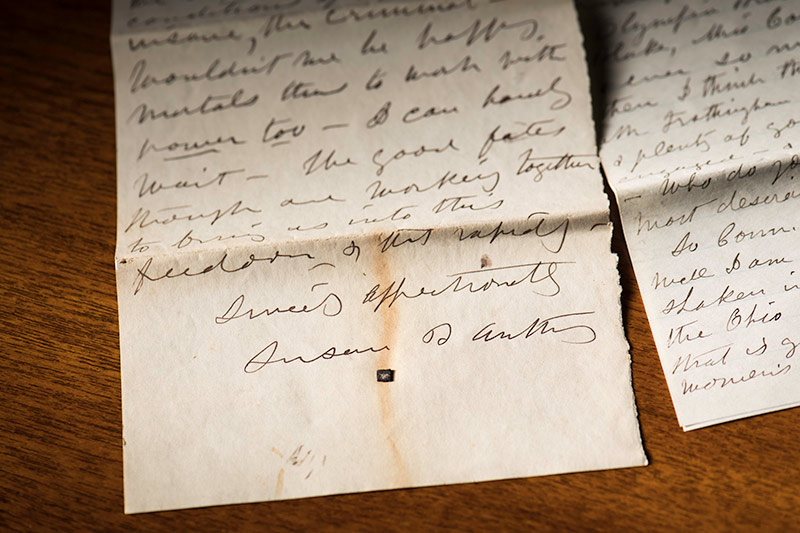 conditions of
insane, the criminal -
Wouldn't we be happy
mortals thus to work with
power too - I can hardly
wait - The good fates
though are working together
to bring us into this
freedom - & that rapidly -
Sincerely Affectionately
Susan B Anthony
Olympia
Blake, Miss
ever so
when I think
Mr Frothingham
& plenty of
engaged -
- Who do
most
So
well I am
shaken
the Ohio
that is
Women's